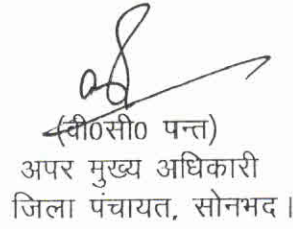 (वी0सी0 पन्त)
अपर मुख्य अधिकारी
जिला पंचायत, सोनभद।